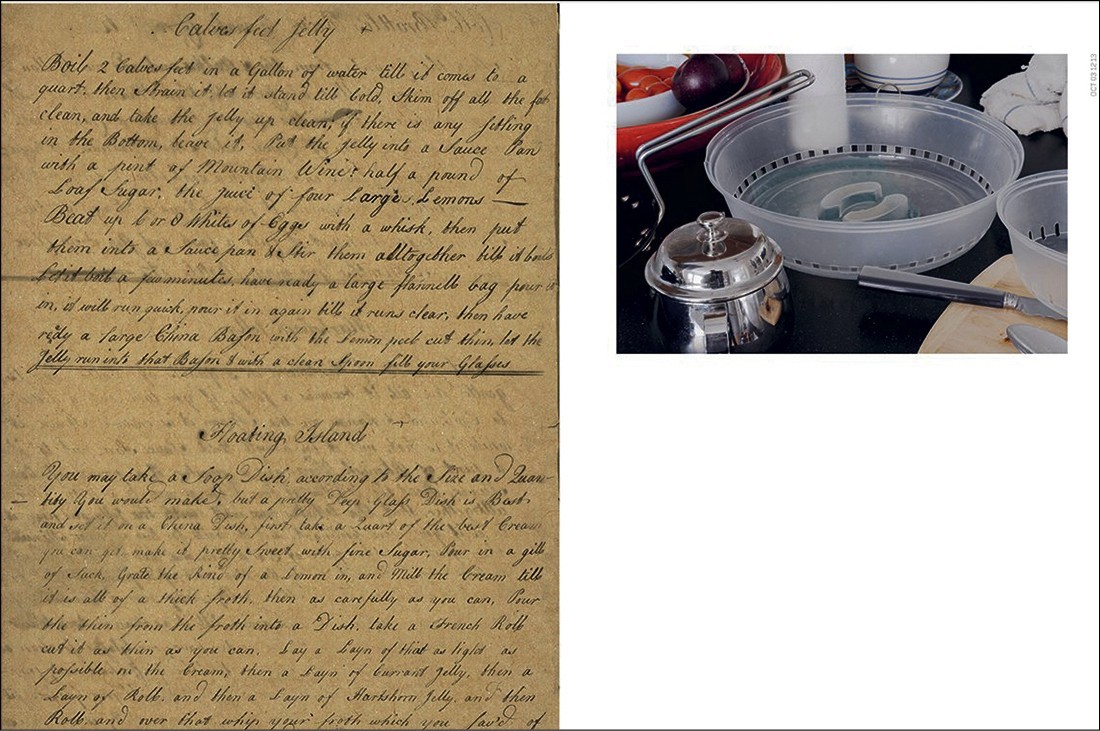 Calves feet Jelly
Boil 2 Calves feet in a Gallon of water till it comes to a
quart, then strain it, let it stand till Cold, skim off all the fat
clean, and take the jelly up clean, if there is any settling
in the Bottom, leave it, Put the jelly into a Sauce Pan
with a pint of Mountain Wine, half a pound of
Loaf Sugar, the juice of four Large Lemons —
Beat up 6 or 8 Whites of Eggs with a whisk, then put
them into a Sauce pan & Stir them altogether till it boils
Let it boil a few minutes, have ready a large flannell bag pour it
in, it will run quick, pour it in again till it runs clear, then have
redy a large China Bason with the Lemon peel cut thin, let the
Jelly run into that Bason & with a clean Spoon fill your Glasses
Floating Island
You may take a Soop Dish, according to the Size and Quan-
tity You would make, but a pretty Deep Glass Dish is Best
and set it on a China Dish, first take a Quart of the best Cream
you can get, make it pretty Sweet, with fine Sugar, Pour in a gill
of Sack, Grate the Rind of a Lemon in, and Mill the Cream till
it is all of a thick froth, then as carefully as you can, Pour
the thin from the froth into a Dish, take a French Roll
cut it as thin as you can. Lay a Layn of that as light as
possible on the Cream, then a Layn of Currant Jelly, then a
Layn of Roll, and then a Layn of Hartshorn Jelly, and then
Roll, and over that whip your froth which you sav'd of
OCT 03 1213